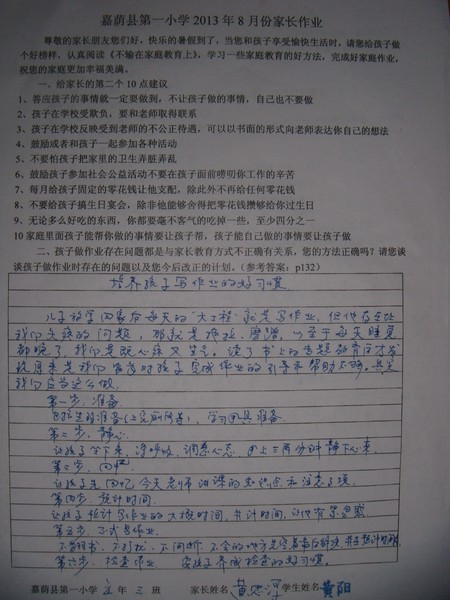 嘉荫县第一小学2013年8月份家长作业
尊敬的家长朋友您们好，快乐的暑假到了，当您和孩子享受愉快生活时，请您给孩子做
个好榜样，认真阅读《不输在家庭教育上》，学习一些家庭教育的好方法，完成好家庭作业，
祝您的家庭更加幸福美满。
一、给家长的第二个10点建议
1、答应孩子的事情就一定要做到，不让孩子做的事情，自己也不要做
2、孩子在学校受欺负，要和老师取得联系
3、孩子在学校反映受到老师的不公正待遇，可以以书面的形式向老师表达你自己的想法
4、鼓励或者和孩子一起参加各种活动
5、不要怕孩子把家里的卫生弄脏弄乱
6、鼓励孩子参加社会公益活动不要在孩子面前唠叨你工作的辛苦
7、每月给孩子固定的零花钱让他支配，除此外不再给任何零花钱
8、不要给孩子搞生日宴会，除非他能够舍得把零花钱攒够给你过生日
9、无论多么好吃的东西，你都要毫不客气的吃掉一些，至少四分之一
10家庭里面孩子能帮你做的事情要让孩子帮，孩子能自己做的事情要让孩子做
二、孩子做作业存在问题都是与家长教育方式不正确有关系，您的方法正确吗？请您谈
谈孩子做作业时存在的问题以及您今后改正的计划。（参考答案：p132）
培养孩子写作业的好习惯
儿子放学回家后每天的"大工程"就是写作业，但他存在让
我们头疼的问题，那就是拖拉、磨蹭，以至于每天睡觉
都晚了，我们是既心疼又生气。读了书上的专题教育后才发
现原来是我们家长对孩子完成作业的引导和帮助不够。其实
我们应当这么做。
第一步、准备
包括生理准备（上完厕所等），学习用具准备
第二步、静心
让孩子坐下来，深呼吸，调整心态，用上三两分钟静下心来
第三步、回忆
让孩子先回忆今天老师讲课的知识点和注意事项
第四步、统计时间
让孩子估计写作业的大概时间，并计时间
第五步、正式写作业
不翻书、不打扰、不间断、不会的地方
第六步、检查作业 让孩子养成检查的好习惯。
嘉荫县第一小学 年三班 家长姓名 学生姓名黄阳